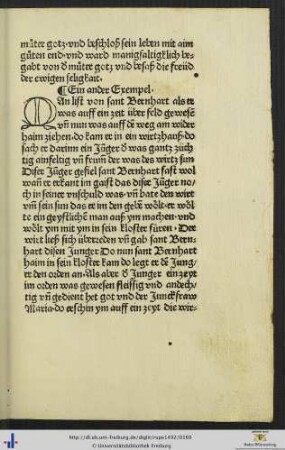 můter gotz·vnd beschloß sein leben mit aim
gůten end·vnd ward manigfaltigklich be-
gabt von ð můter gotz vnd besaß die freüd
der ewigen seligkait.
¶ Ein ander Exempel·
MAn lißt von sant Bernhart als er
was auff ein zeit über feld gewesē
vn̄ nun was auff dē weg am wider
haim ziehen·do kam er in ein wirtzhauß·do
sach er darinn ein Jüger ð was gantz züch
tig ainfeltig vn̄ frum̄ der was des wirtz sun
Diser Jüger gefiel sant Bernhart fast wol
wan̄ er erkant im gaist das diser Jüger no/
ch in seiner vnschuld was·vn̄ bate den wirt
vm̄ sein sun das er im den gebē wölt·er wöl
te ein geystlichē man auß ym machen·vnd
wölt ym mit ym in sein kloster füren·Der
wirt ließ sich überreden vn̄ gab sant Bern/
hart disen Junger·Do nun sant Bernhart
haim in sein kloster kam do legt er dē Jung/
er den orden an·Als aber ð Junger ein zeyt
im orden was gewesen fleissig vnd andech/
tig vn̄ gedient het got vnd der Junckfraw
Maria·do erschin ym auff ein zeyt die wir-
http://dl.ub.uni-freiburg.de/diglit/rape1492/0180
© Universitätsbibliothek Freiburg